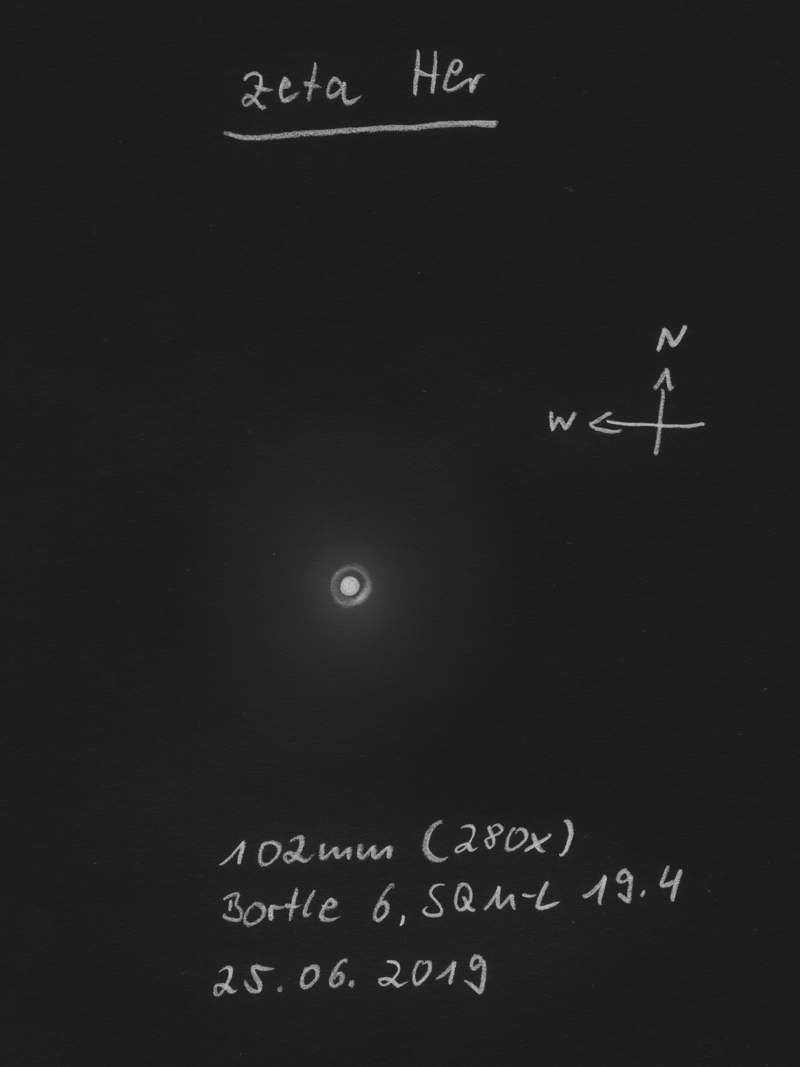 zeta Her
N
W
102mm (280x)
Bortle 6, SQM-L 19.4
25.06.2019